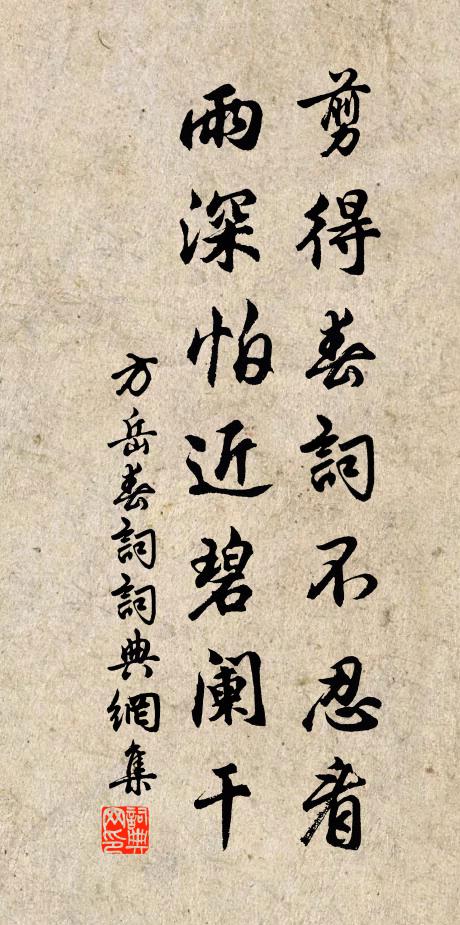 剪得春詞不忍看
雨深怕近碧闌干
方岳春詞詞典網集
詞典網印